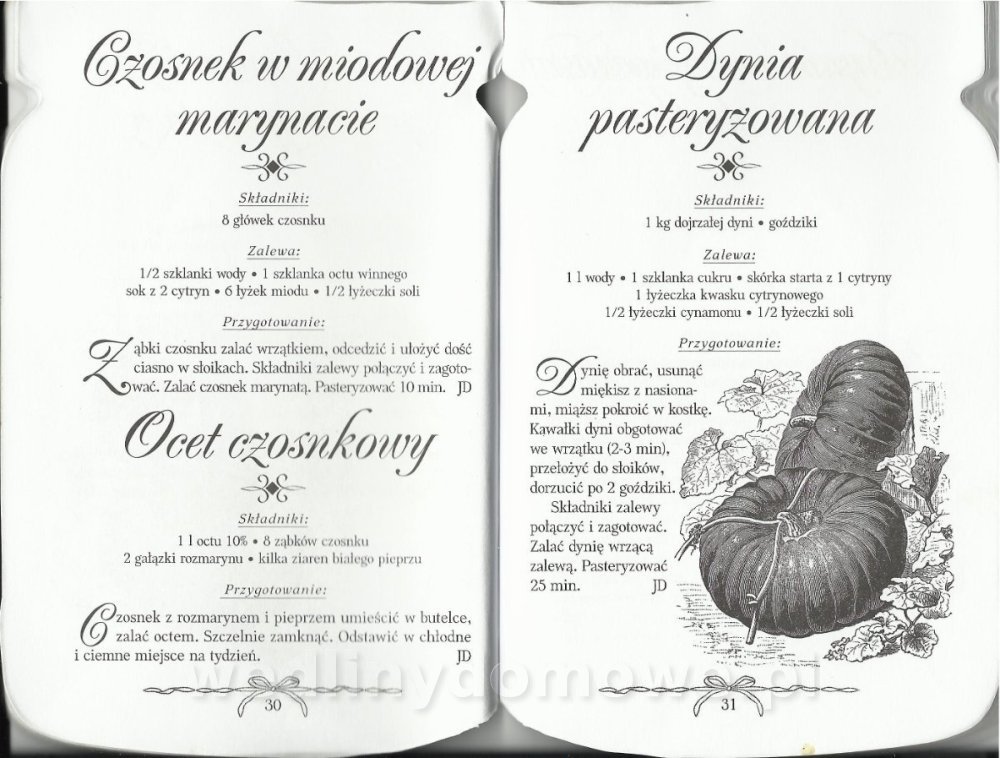 Czosnek w miodowej
marynacie
Składniki:
8 główek czosnku
Zalewa:
1/2 szklanki wody • 1 szklanka octu winnego
sok z 2 cytryn • 6 łyżek miodu • 1/2 łyżeczki soli
Przygotowanie:
Ząbki czosnku zalać wrzątkiem, odcedzić i ułożyć dość
ciasno w słoikach. Składniki zalewy połączyć i zagoto-
wać. Zalać czosnek marynatą. Pasteryzować 10 min. JD
Ocet czosnkowy
Składniki:
1 l octu 10% • 8 ząbków czosnku
2 gałązki rozmarynu • kilka ziaren białego pieprzu
Przygotowanie:
Czosnek z rozmarynem i pieprzem umieścić w butelce,
zalać octem. Szczelnie zamknąć. Odstawić w chłodne
i ciemne miejsce na tydzień. JD
30
Dynia
pasteryzowana
Składniki:
1 kg dojrzałej dyni • goździki
Zalewa:
1 l wody • 1 szklanka cukru • skórka starta z 1 cytryny
1 łyżeczka kwasku cytrynowego
1/2 łyżeczki cynamonu • 1/2 łyżeczki soli
Przygotowanie:
Dynię obrać, usunąć
miękisz z nasiona-
mi, miąższ pokroić w kostkę.
Kawałki dyni obgotować
we wrzątku (2-3 min),
przełożyć do słoików,
dorzucić po 2 goździki.
Składniki zalewy
połączyć i zagotować.
Zalać dynię wrzącą
zalewą. Pasteryzować
25 min. JD
31
wedlinydomowe.pl